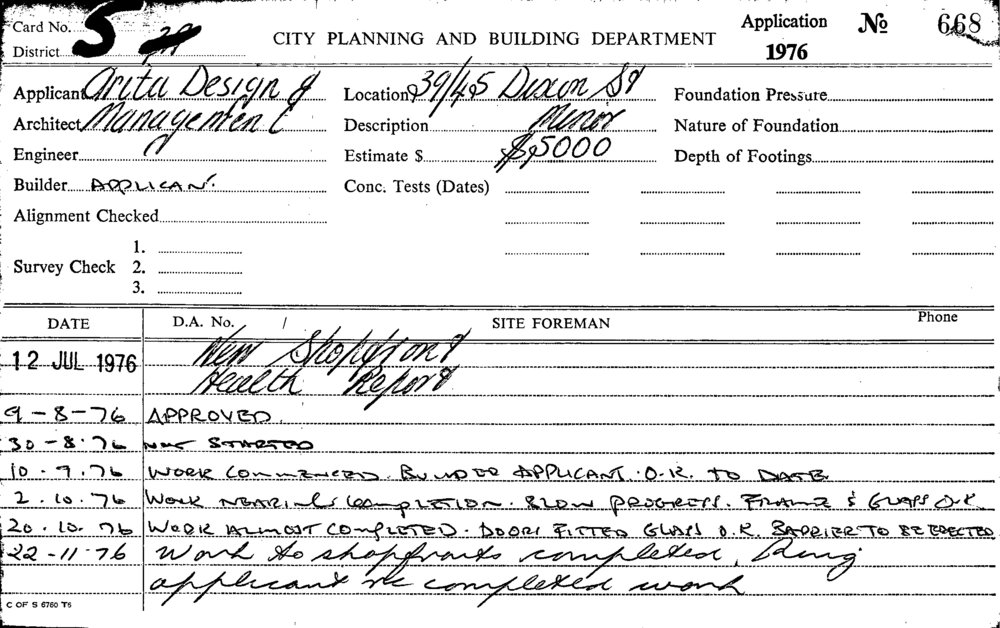 Card No. S
District 29
CITY PLANNING AND BUILDING DEPARTMENT
Application No 668
1976
Applicant Arita Design &
Architect Management
Engineer
Builder APPLICANT.
Alignment Checked
Survey Check 1.
2.
3.
Location 39/45 Dixon St
Description Minor
Estimate $ $5000
Conc. Tests (Dates)
Foundation Pressure
Nature of Foundation
Depth of Footings
DATE D.A. No. / SITE FOREMAN Phone
12 JUL 1976 New Shopfront
Health Report
9-8-76 APPROVED.
30-8-76 NOT STARTED
10.9.76 WORK COMMENCED. BUILDER APPLICANT. O.K. TO DATE
2.10.76 WORK NEARING COMPLETION. SLOW PROGRESS. FRAME & GLASS O.K.
20.10.76 WORK ALMOST COMPLETED. DOORS FITTED GLASS O.K. BARRIER TO BE ERECTED
22-11-76 Work to shopfronts completed, Ring
applicant re completed work
C OF S 6760 T6